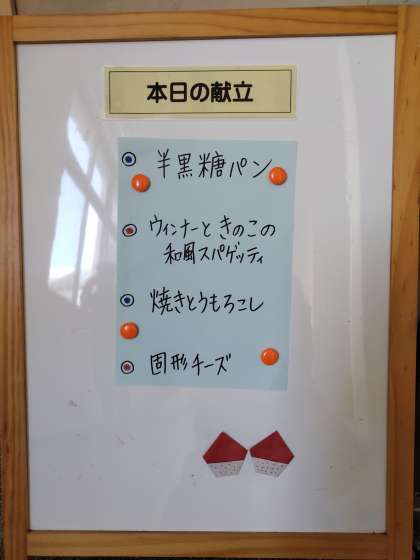 本日の献立
半黒糖パン
ウィンナーときのこの
和風スパゲッティ
焼きとうもろこし
固形チーズ